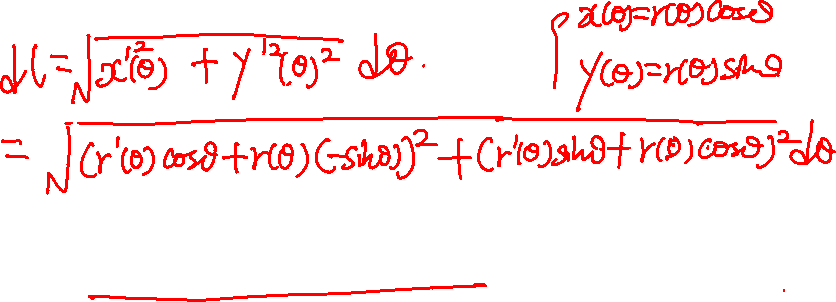 dl = √(x'²(θ) + y'²(θ)²) dθ.
{ x(θ)=r(θ)cosθ
y(θ)=r(θ)sinθ
= √((r'(θ)cosθ+r(θ)(-sinθ))²+(r'(θ)sinθ+r(θ)cosθ)²) dθ